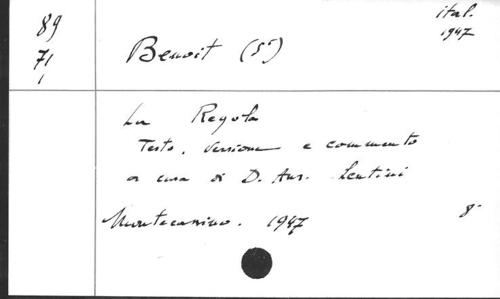 89
71
1
ital.
1947
Benoit (St)
La Regola
Testo, versione e commento
a cura di D. Ans. Lentini
Montecassino. 1947 8°